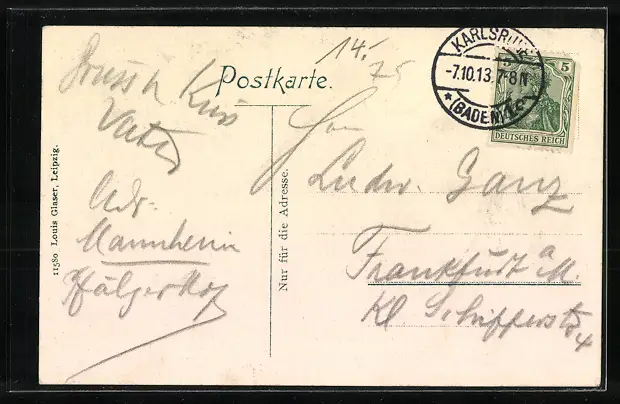 14.
75
Postkarte.
KARLSRUHE
-7.10.13.7-8N
* (BADEN) 1c
5
DEUTSCHES REICH
Gruss u. Kuss
Vater
Adr.
Mannheim
Pfälzerhof
11580 Louis Glaser, Leipzig.
Nur für die Adresse.
Ludw. Ganz
Frankfurt a M.
Kl